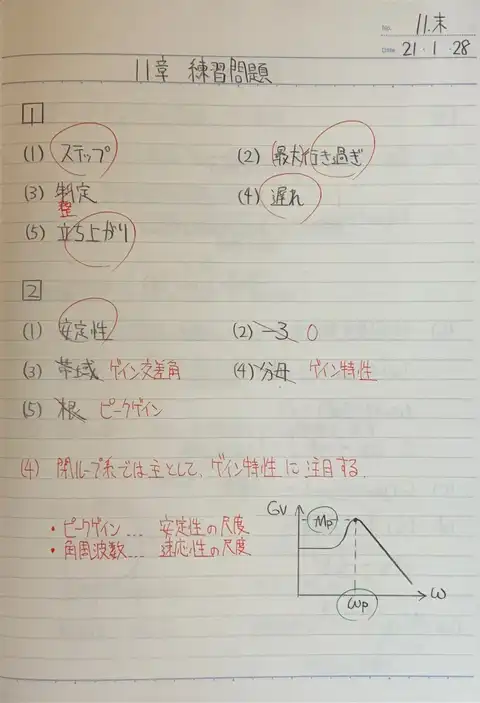 No. 11.末
Date 21・1・28
11章 練習問題
1
(1) ステップ (2) (最大)行き過ぎ
(3) 制定 (4) 遅れ
整
(5) 立ち上がり
2
(1) 安定性 (2) -3 0
(3) 帯域 ゲイン交差角 (4) 分母 ゲイン特性
(5) 根 ピークゲイン
(4) 閉ループ系では主として、ゲイン特性に注目する.
・ピークゲイン... 安定性の尺度
・角周波数... 速応性の尺度
GV
Mp
ω
ωp